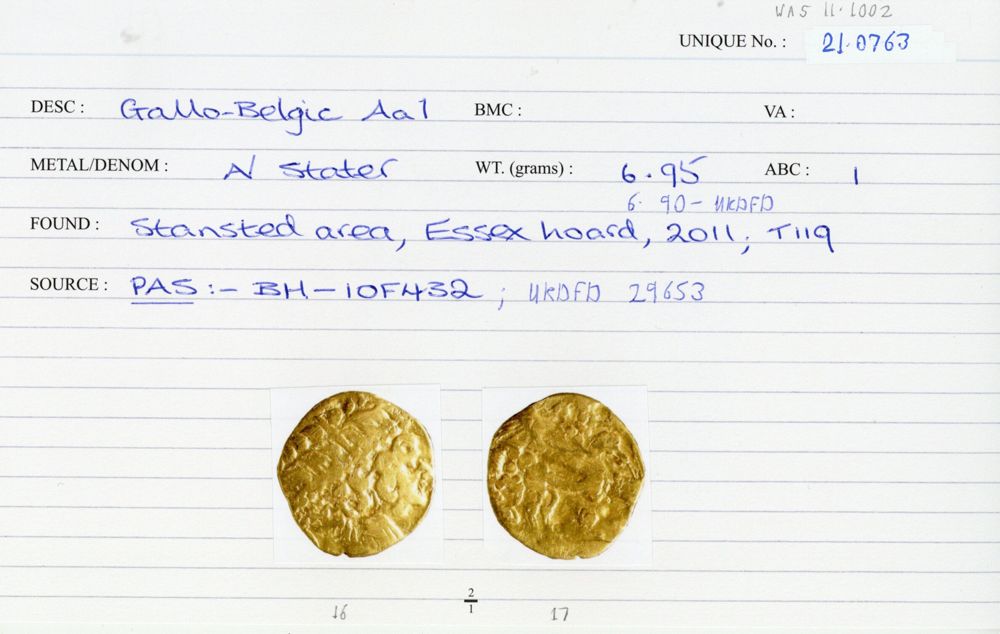 WAS 11.1002
UNIQUE No. : 21.0763
DESC : Gallo-Belgic Aa1 BMC : VA :
METAL/DENOM : N Stater WT. (grams) : 6.95 ABC : 1
6.90 - UKDFD
FOUND : Stansted area, Essex hoard, 2011; T119
SOURCE : PAS :- BH-10F432 ; UKDFD 29653
2/1
16 17